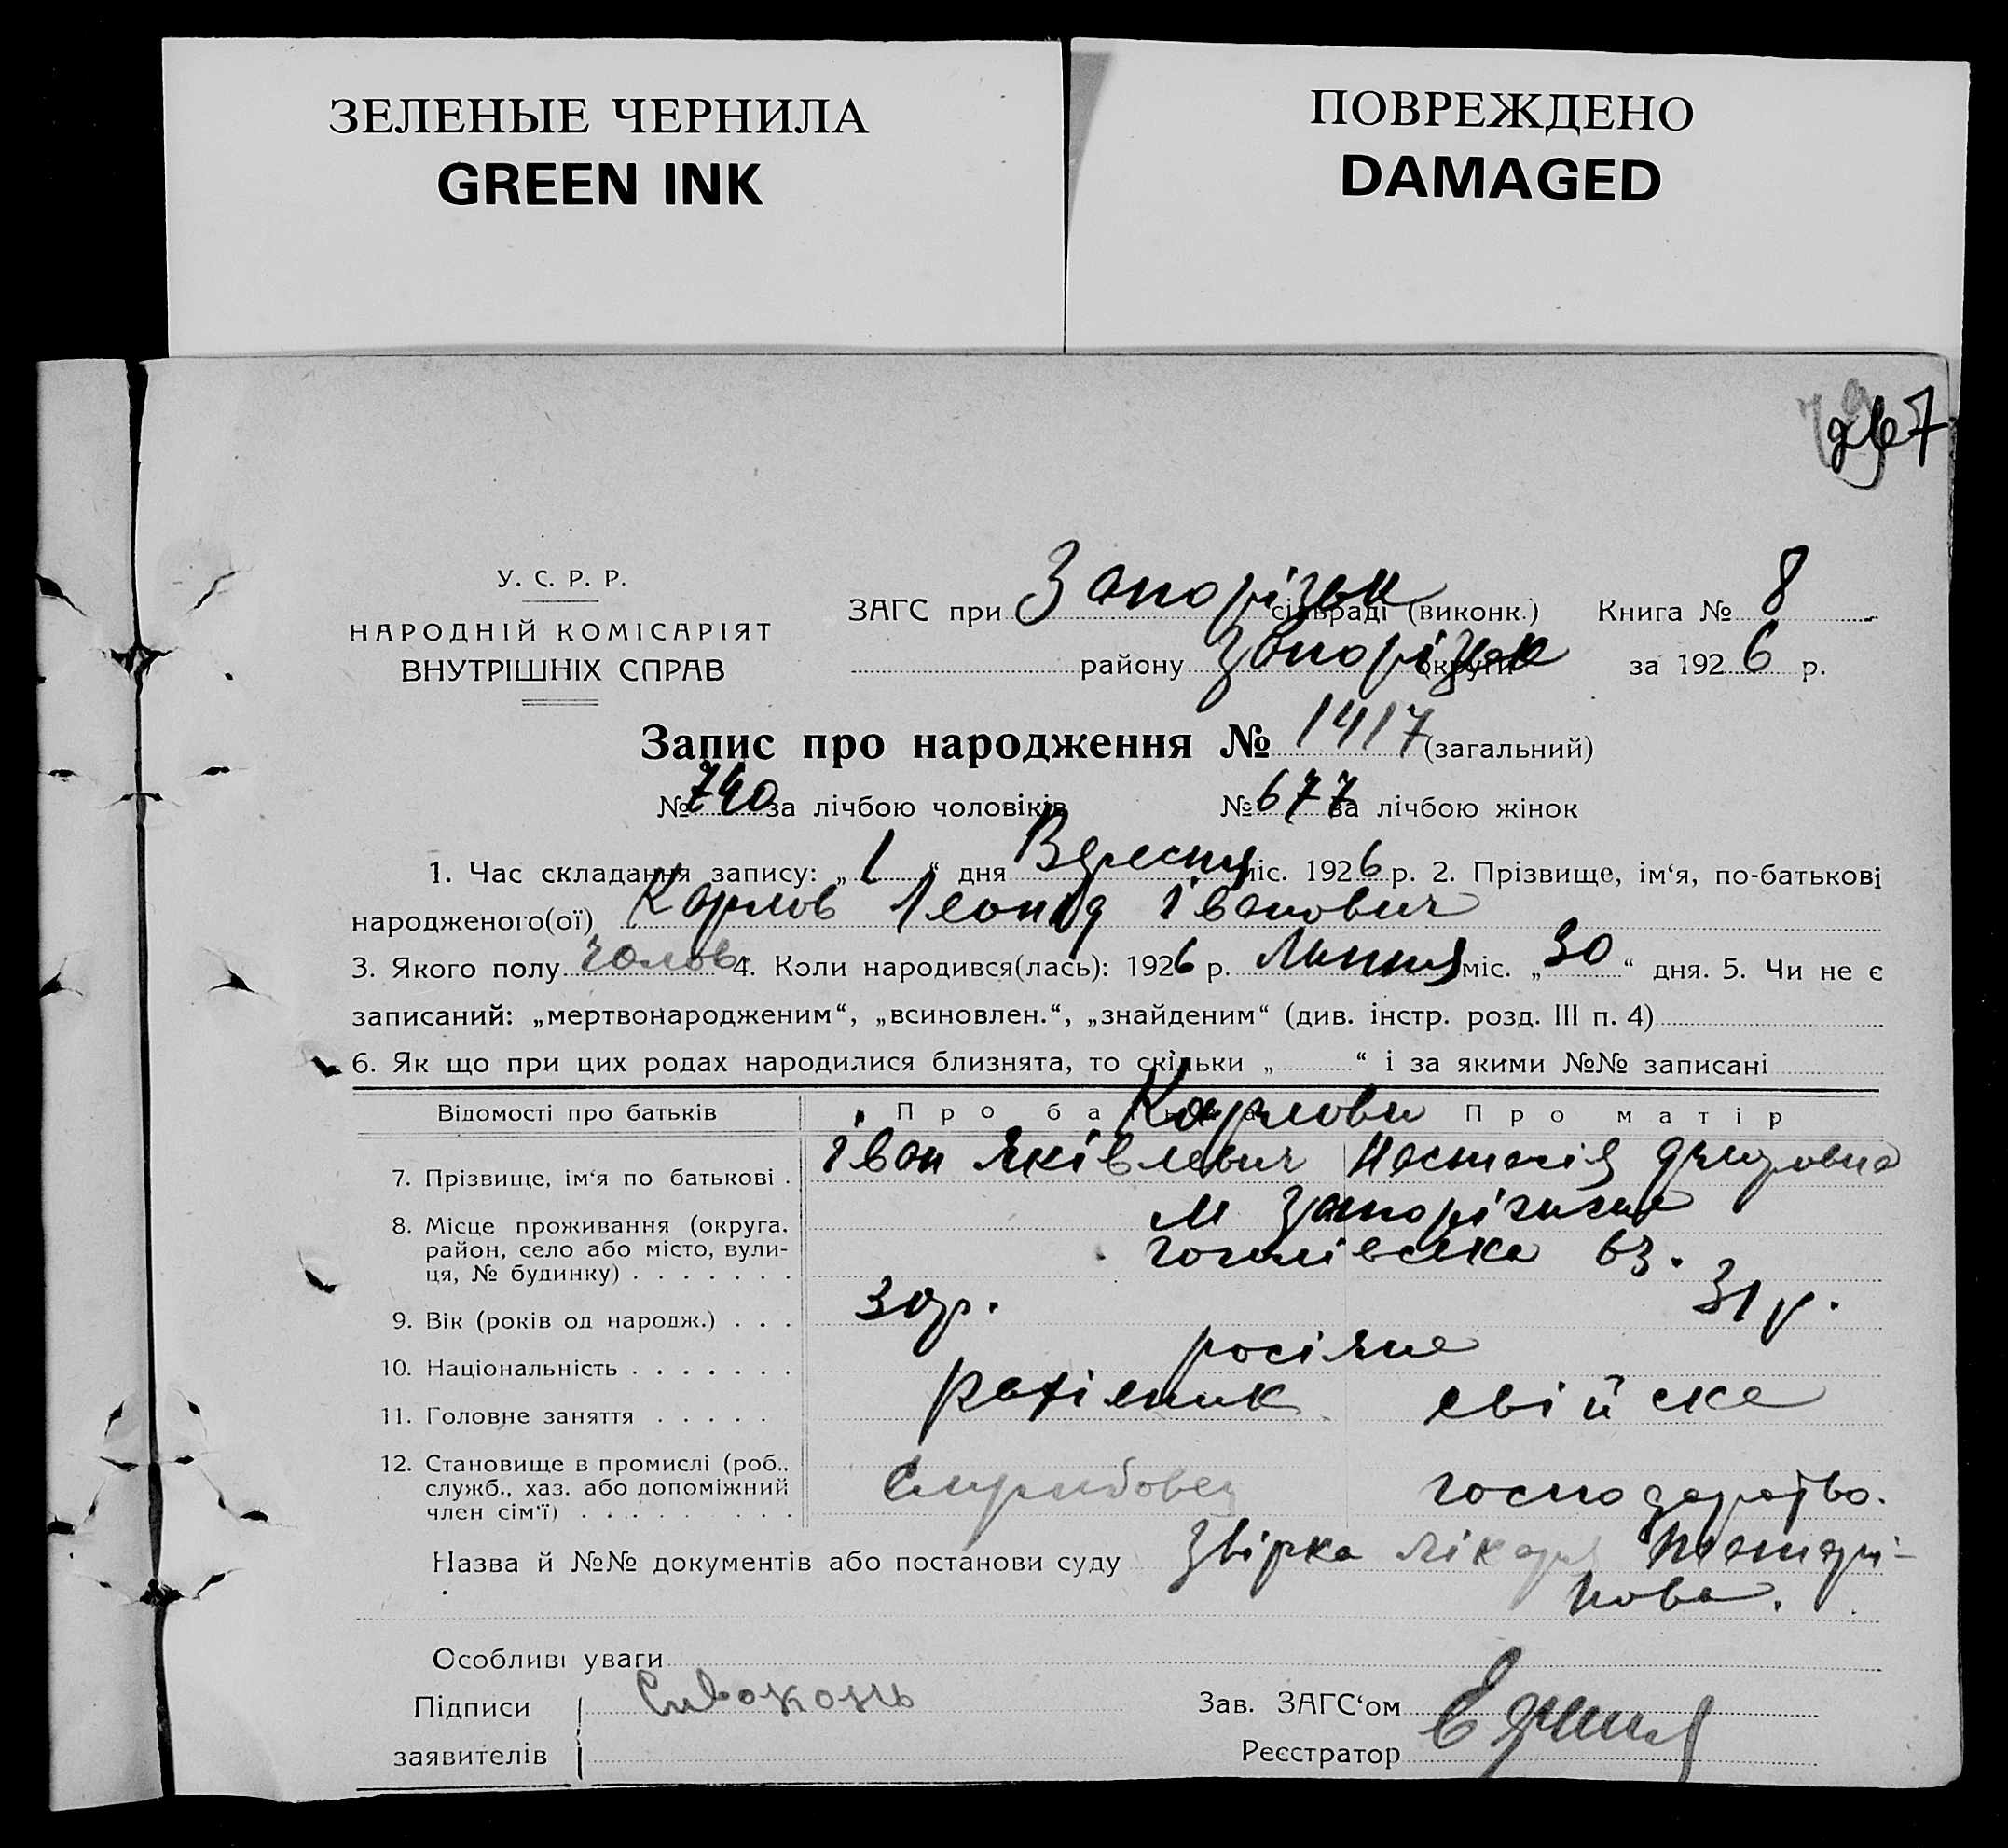 ЗЕЛЕНЫЕ ЧЕРНИЛА
GREEN INK
ПОВРЕЖДЕНО
DAMAGED
267
У. С. Р. Р.
НАРОДНІЙ КОМІСАРІЯТ
ВНУТРІШНІХ СПРАВ
ЗАГС при Запорізьк сільраді (виконк.) Книга № 8
району Запорізьк округи за 1926 р.
Запис про народження № 1417 (загальний)
№ 740 за лічбою чоловіків № 677 за лічбою жінок
1. Час складання запису: „1“ дня Вересня міс. 1926 р. 2. Прізвище, ім‘я, по-батькові
народженого(ої) Карлов Леонід Іванович
3. Якого полу чолов. 4. Коли народився(лась): 1926 р. Липня міс. „30“ дня. 5. Чи не є
записаний: „мертвонародженим“, „всиновлен.“, „знайденим“ (див. інстр. розд. III п. 4)
6. Як що при цих родах народилися близнята, то скільки „ “ і за якими №№ записані
Відомості про батьків Про батька Про матір
Карлови
7. Прізвище, ім‘я по батькові . Іван Яківлевич Настасія
8. Місце проживання (округа, район, село або місто, вулиця, № будинку) . . . . . . . м Запоріжжя
Гоголівська 63.
9. Вік (років од народж.) . . . 30р. 31 р.
10. Національність . . . . . . . росіяне
11. Головне заняття . . . . . робітник свійське
12. Становище в промислі (роб., служб., хаз. або допоміжний член сім‘ї) . . . . . . . . . господарство.
Назва й №№ документів або постанови суду Звірка лікаря
Особливі уваги
Підписи Сивоконь Зав. ЗАГС‘ом
заявителів Реєстратор